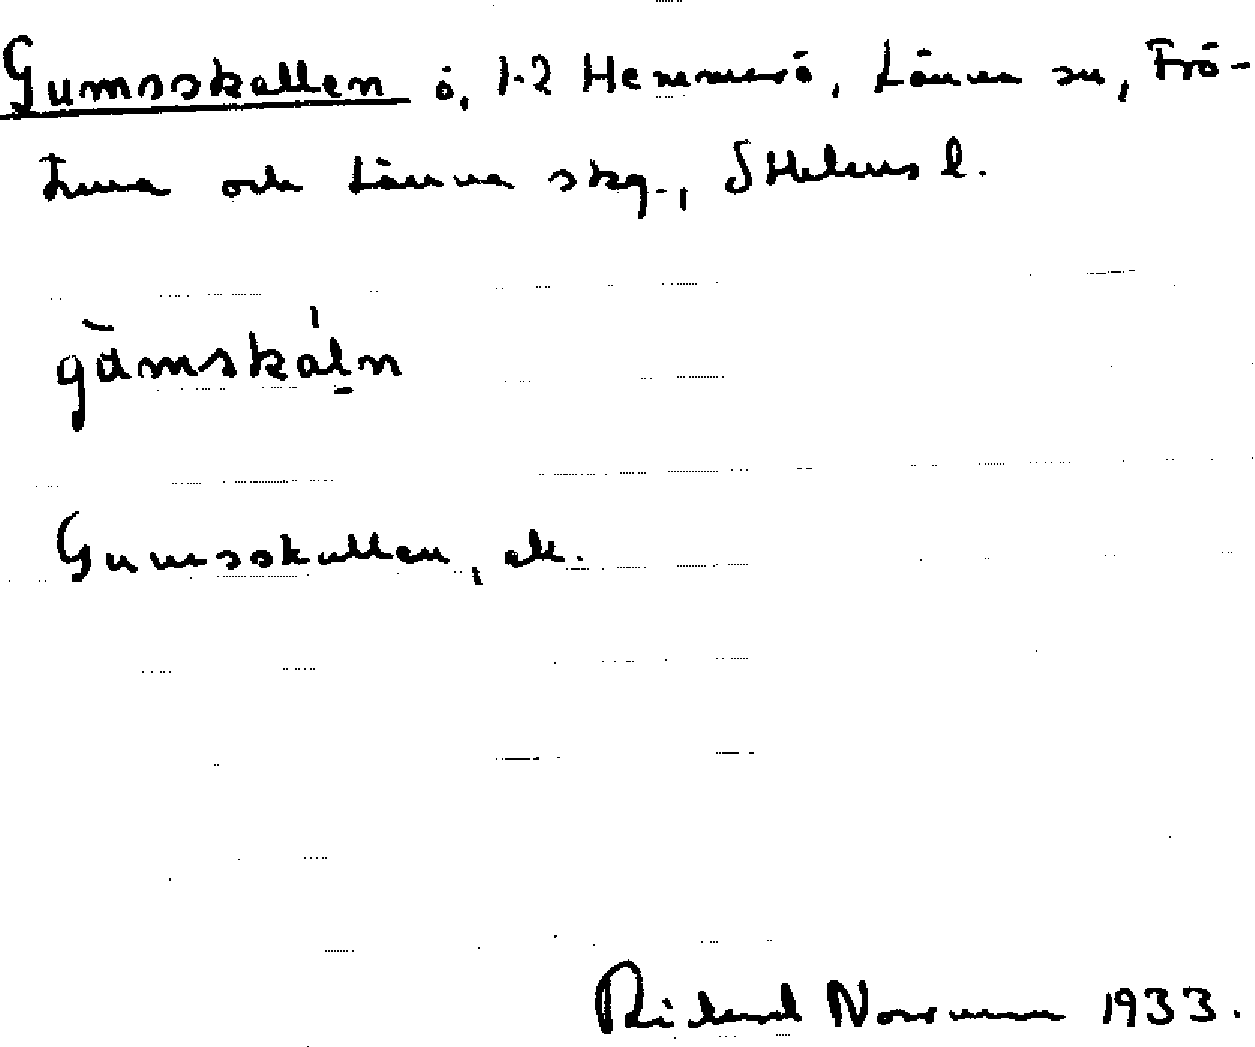 Gumsskallen ö, 1-2 Hemmarö, Länna sn, Frö-
tuna och Länna skg., SthlmS l.
gùmskáḷn
Gumsskallen, ek.
Rickard Norrman 1933.